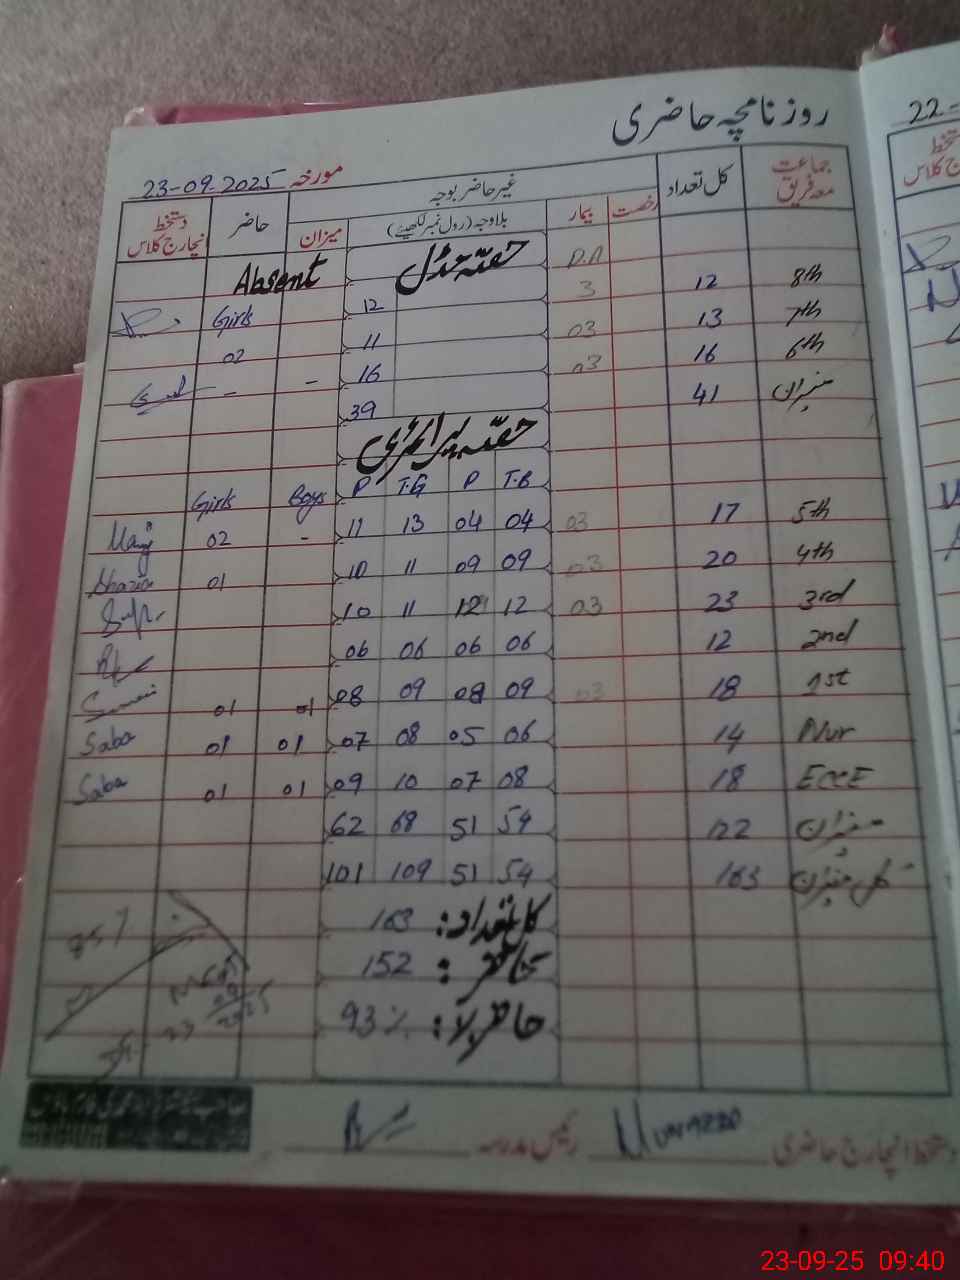 روزنامچہ حاضری
مورخہ 23-09-2025
جماعت معہ فریق کل تعداد غیر حاضر بوجہ حاضر دستخط انچارج کلاس
رخصت بیمار بلاوجہ (رول نمبر لکھیئے) میزان
P.A حصّہ مڈل Absent
8th 12 3 12 Girls
7th 13 03 11 02
6th 16 03 16 - -
میزان 41 39
حصّہ پرائمری
T.B P T.G P Boys Girls
5th 17 03 04 04 13 11 - 02
4th 20 03 09 09 11 10 01 Shazia
3rd 23 03 12 12 11 10
2nd 12 06 06 06 06
1st 18 03 09 08 09 08 01 01
Nur 14 06 05 08 07 01 01 Saba
ECCE 18 08 07 10 09 01 01 Saba
میزان 122 54 51 68 62
کل میزان 163 54 51 109 101
کل تعداد: 163
حاضر: 152
حاضر %: 93%
85%
23
دستخط انچارج حاضری رئیس مدرسہ
22-
دستخط
انچارج کلاس
23-09-25 09:40